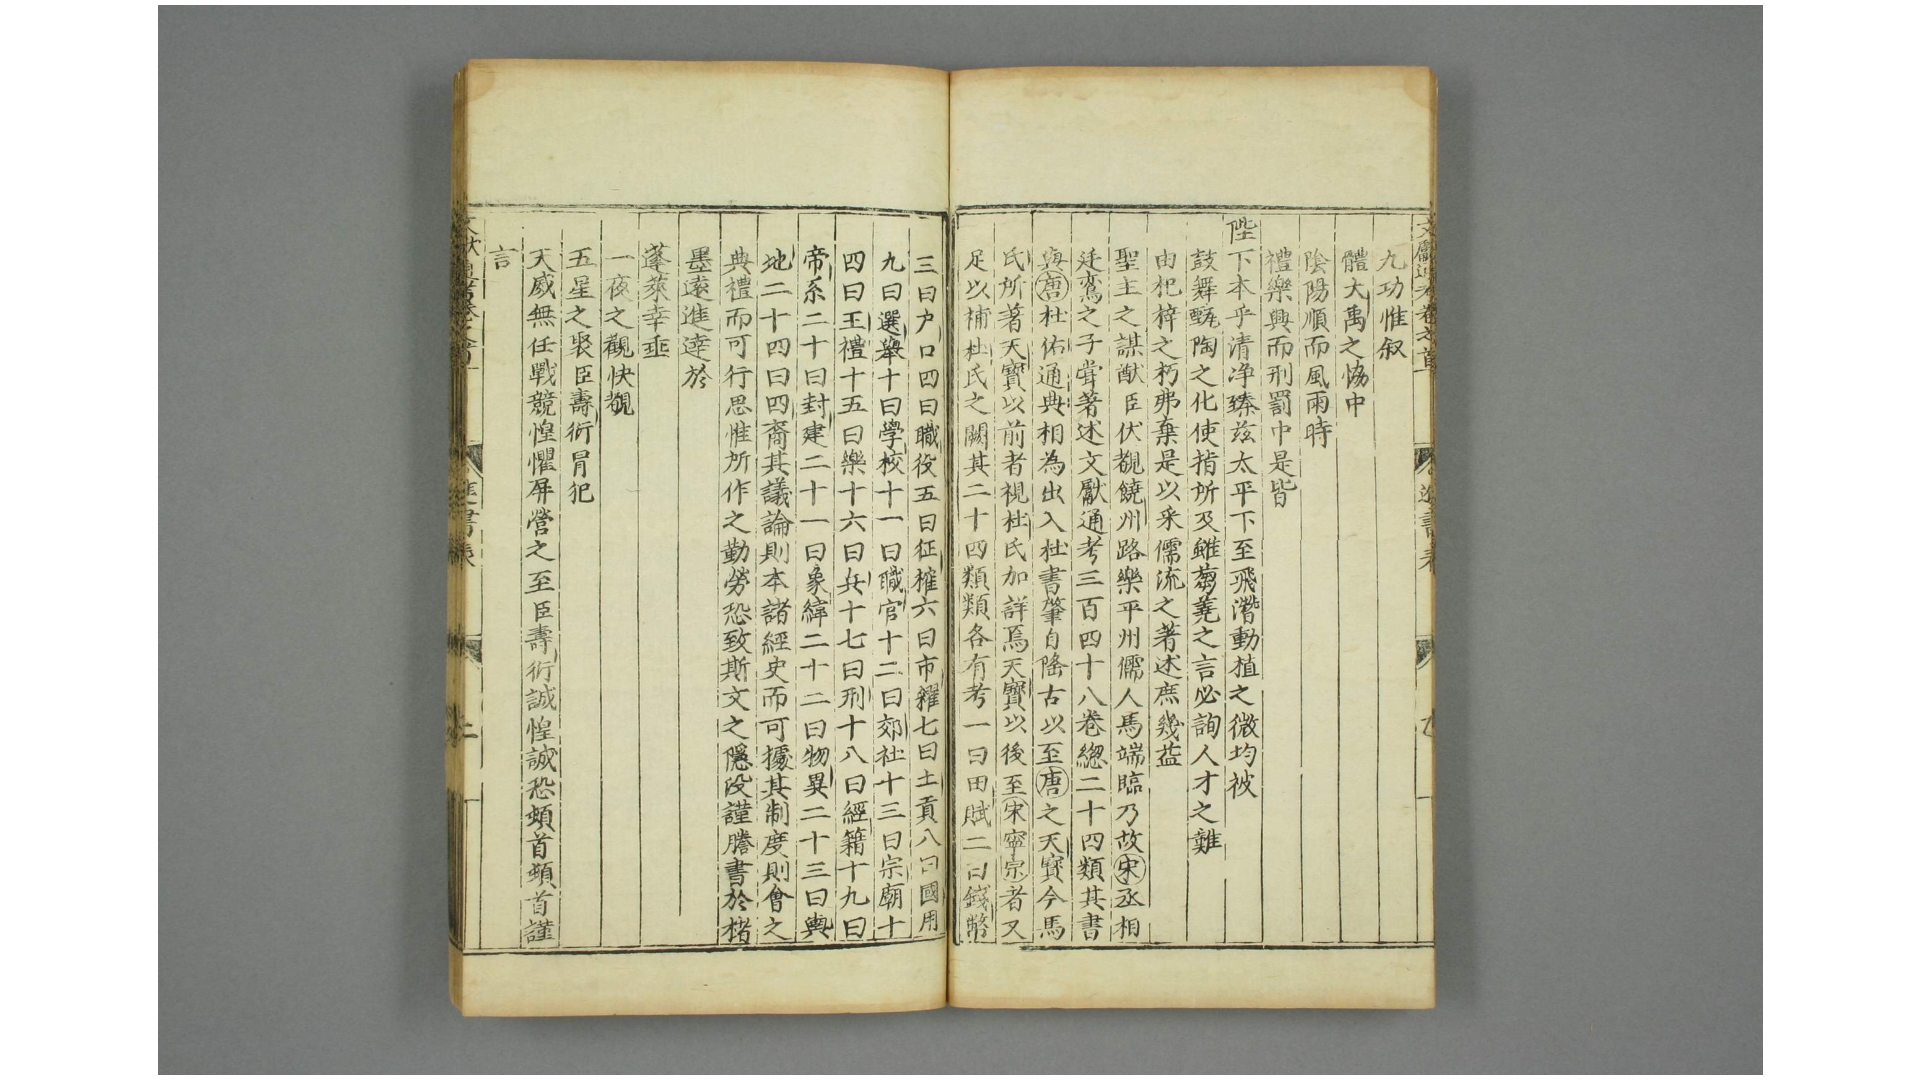 九功惟叙
體大禹之恊中
隂陽順而風雨時
禮樂興而刑罰中是皆
陛下本乎清净臻兹太平下至飛潛動植之微均被
鼓舞甄陶之化使指所及雖蒭蕘之言必詢人才之難
由杞梓之朽弗棄是以采儒流之著述庶幾益
聖主之謀猷臣伏覩饒州路樂平州儒人馬端臨乃故宋丞相
廷鸞之子甞著述文獻通考三百四十八卷緫二十四類其書
與唐杜佑通典相為出入杜書肇自隆古以至唐之天寶今馬
氏所著天寶以前者視杜氏加詳焉天寶以後至宋寧宗者又
足以補杜氏之闕其二十四類類各有考一曰田賦二曰錢幣
三曰户口四曰職役五曰征榷六曰市糴七曰土貢八曰國用
九曰選舉十曰學校十一曰職官十二曰郊社十三曰宗廟十
四曰王禮十五曰樂十六曰兵十七曰刑十八曰經籍十九曰
帝系二十曰封建二十一曰象緯二十二曰物異二十三曰輿
地二十四曰四裔其議論則本諸經史而可據其制度則會之
典禮而可行思惟所作之勤勞恐致斯文之隱没謹謄書於楮
墨遠進逹於
蓬萊幸垂
一夜之觀快覩
五星之聚臣壽衍冐犯
天威無任戰競惶懼屏營之至臣壽衍誠惶誠恐頓首頓首謹
言